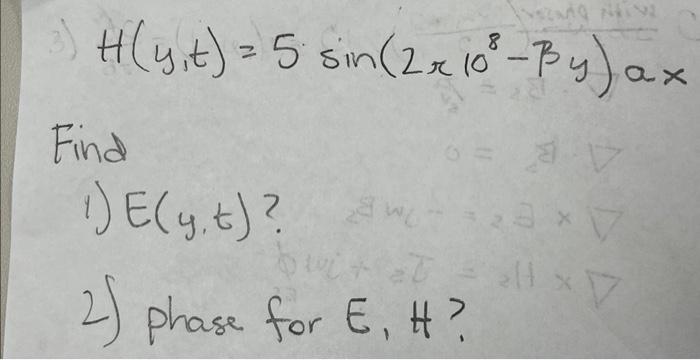 3) H(y,t) = 5 sin(2π10⁸ - βy) ax
Find
1) E(y,t)?
2) phase for E, H?